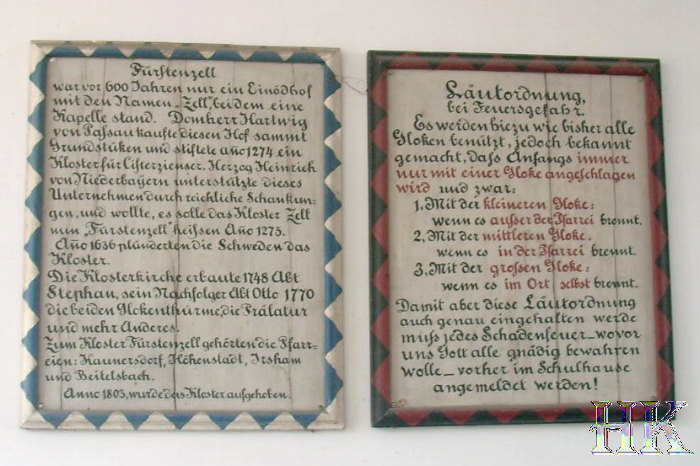 Fürstenzell
war vor 600 Jahren nur ein Einödhof
mit den Namen „Zell", bei dem eine
Kapelle stand. Domherr Hartwig
von Passau kaufte diesen Hof sammt
Grundstüken und stiftete año 1274 ein
Kloster für Cisterzienser. Herzog Heinrich
von Niederbayern unterstützte dieses
Unternehmen durch reichliche Schankun-
gen, und wollte, es solle das Kloster Zell
nun „Fürstenzell" heissen Año 1275.
Año 1636 plünderten die Schweden das
Kloster.
Die Klosterkirche erbaute 1748 Abt
Stephan, sein Nachfolger Abt Otto 1770
die beiden Glokenthürme, die Prälatur
und mehr Anderes.
Zum Kloster Fürstenzell gehörten die Pfarr-
eien: Kaunersdorf, Höhenstadt, Irsham
und Beitelsbach.
Anno 1803, wurde das Kloster aufgehoben.
Läutordnung,
bei Feuersgefahr.
Es werden hiezu wie bisher alle
Gloken benützt, jedoch bekannt
gemacht, daß Anfangs immer
nur mit einer Gloke angeschlagen
wird und zwar:
1, Mit der kleineren Gloke:
wenn es außer der Pfarrei brennt.
2, Mit der mittleren Gloke.
wenn es in der Pfarrei brennt.
3, Mit der großen Gloke:
wenn es im Ort selbst brennt.
Damit aber diese Läutordnung
auch genau eingehalten werde
muß jedes Schadenfeuer – wovor
uns Gott alle gnädig bewahren
wolle – vorher im Schulhause
angemeldet werden!
HK